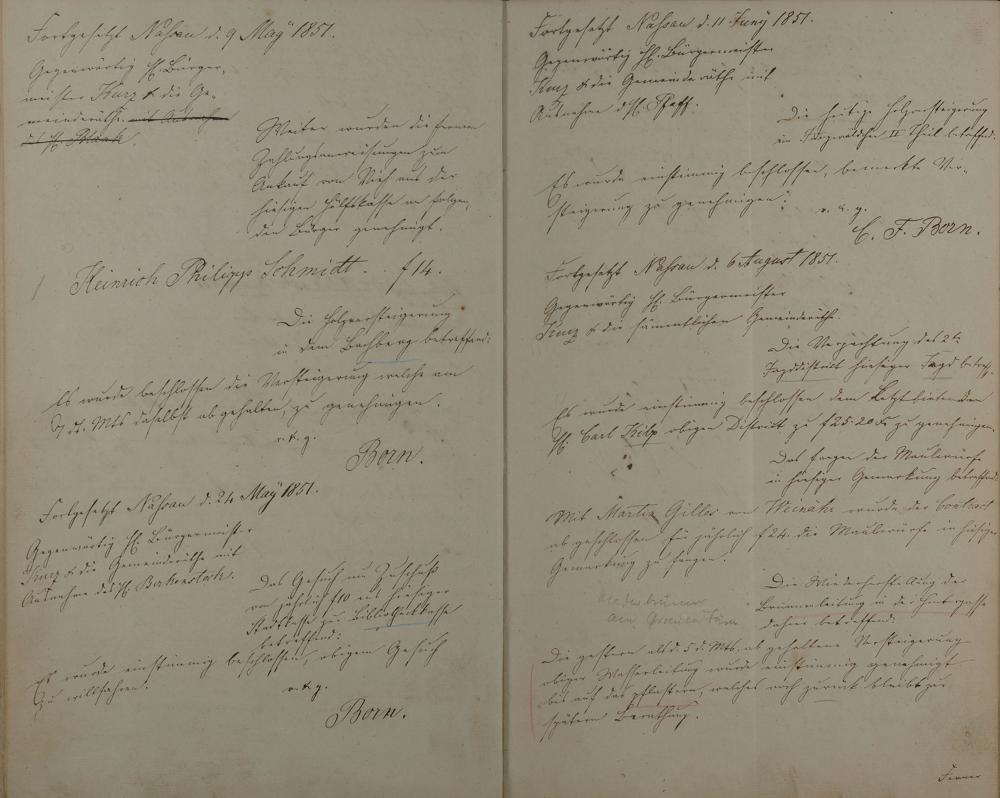 Fortgesetzt Nassau d. 9 May 1851.
Gegenwärtig H. Bürger-
meister Kurz & die Ge-
meinderäthe. mit Ausnahme
des H. Blank.
Weiter wurden die fernern
Zahlungsanweisungen zum
Ankauf von Vieh aus der
hiesigen Hülfskasse an folgen-
den Bürger genehmigt.
Heinrich Philipp Schmidt . . f 14.
Die Holzversteigerung
in dem Bachberg betreffend:
Es wurde beschlossen die Versteigerung welche am
7 ds. Mts daselbst abgehalten, zu genehmigen.
v. & g.
Born.
Fortgesetzt Nassau d. 24 May 1851.
Gegenwärtig H. Bürgermeister
Kurz & die Gemeinderäthe mit
Ausnahme des H. Berkenstock.
Das Gesuch um Zuschuß
von jährlich f 10 aus hiesiger
Stadtkasse zur Bibliothekkasse
betreffend:
Es wurde einstimmig beschlossen, obigem Gesuch
zu willfahren.
v. & g.
Born.
Fortgesetzt Nassau d. 11 Juny 1851.
Gegenwärtig H. Bürgermeister
Kurz & die Gemeinderäthe mit
Ausnahme des H. Pfaff.
Die heutige Holzversteigerung
im II Theil betreffend.
Es wurde einstimmig beschlossen, bemerkte Ver-
steigerung zu genehmigen.
v. & g.
C. F. Born.
Fortgesetzt Nassau d. 6 August 1851.
Gegenwärtig H. Bürgermeister
Kurz & die sämmtlichen Gemeinderäthe.
Die Verpachtung des 2t.
Jagddistrict hiesiger Jagd betref.
Es wurde einstimmig beschlossen dem Letztbietenden
H. Carl Kilp obigen District zu f 25. 20 zu genehmigen.
Das Fangen der Maulwürfe
in hiesiger Gemarkung betreffend
Mit Martin Gilles von Weinahr wurde der Contract
abgeschlossen für jährlich f 24. die Maulwürfe in hiesiger
Gemarkung zu fangen.
Die Wiederherstellung der
Brunnenleitung in der Hintergasse
dahier betreffend:
Die gestern als d. 5 d. Mts. abgehaltene Versteigerung
obiger Wasserleitung wurde einstimmig genehmigt
bis auf das pflastern, welches noch zurück bleibt zur
spätern Berathung.
Ferner